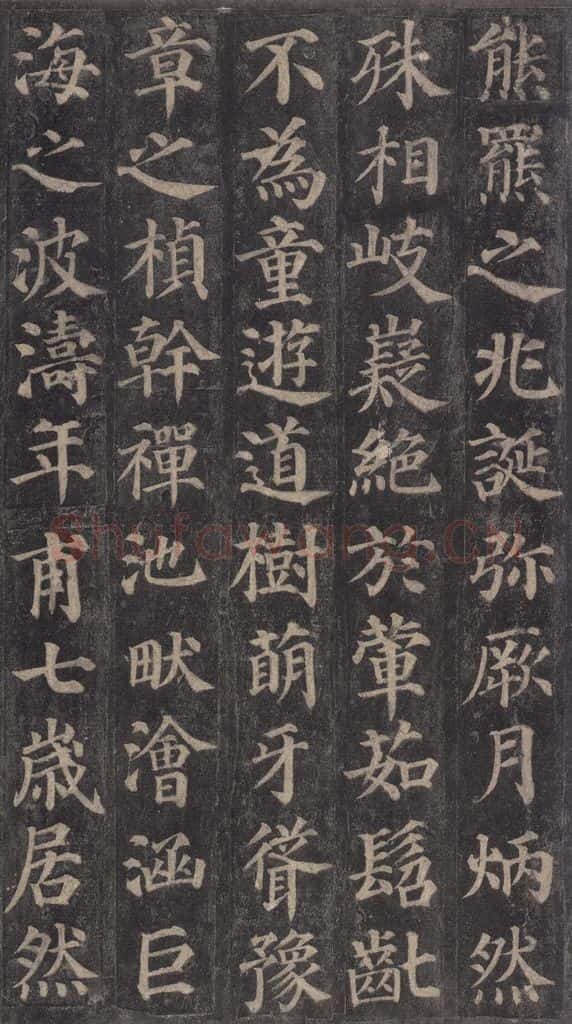 熊羆之兆誕弥厥月炳然
殊相岐嶷絕於葷茹髫齔
不為童遊道樹萌牙聳豫
章之楨幹禪池畎澮涵巨
海之波濤年甫七歲居然
Shufawang.cn